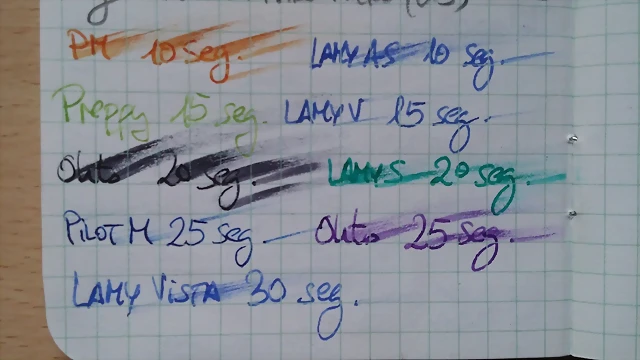 PM 10 seg. LAMY AS 10 seg.
Preppy 15 seg. LAMY V 15 seg.
Ohto 20 seg. LAMY S 20 seg.
PILOT M 25 seg. Ohto 25 seg.
LAMY VISTA 30 seg.